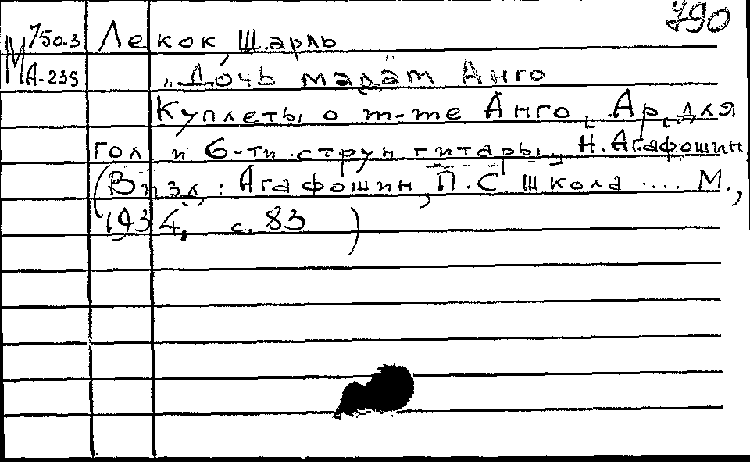 790
М 750-3 Лекок, Шарль
А-235 "Дочь мадам Анго
Куплеты о m-me Анго. Ар. для
гол и 6-ти струн гитары, Н. Агафошин.
(В изд: Агафошин, П.С. Школа .... М.,
1934, с. 83 )